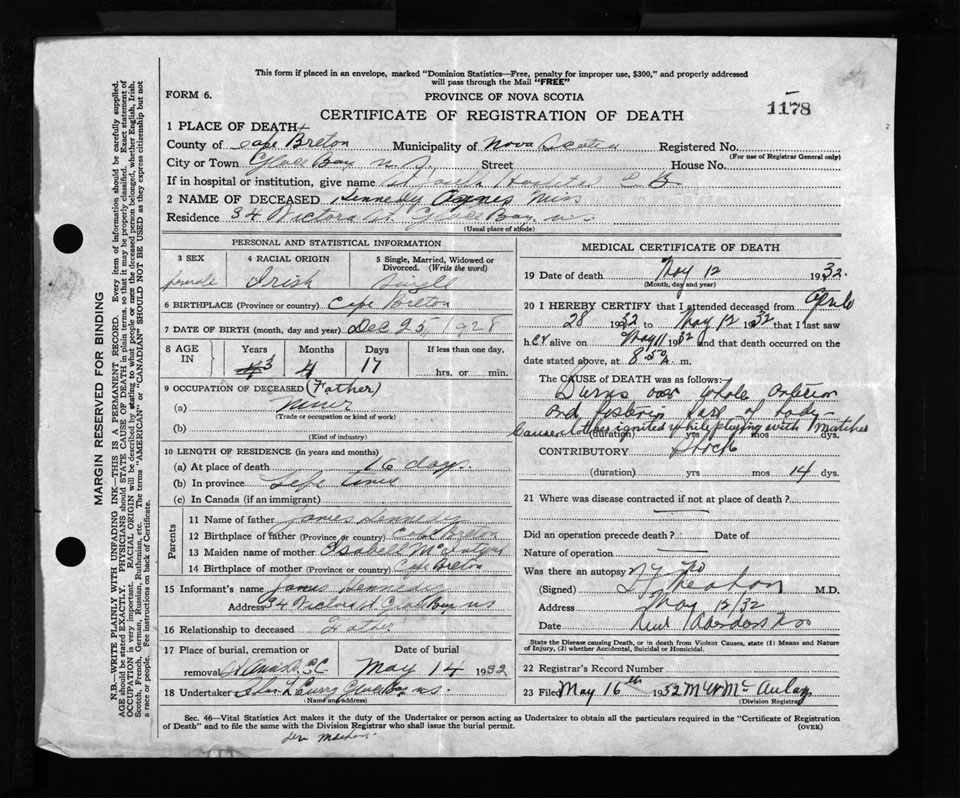 This form if placed in an envelope, marked "Dominion Statistics—Free, penalty for improper use, $300," and properly addressed
will pass through the Mail "FREE"
FORM 6.
PROVINCE OF NOVA SCOTIA
1178
CERTIFICATE OF REGISTRATION OF DEATH
1 PLACE OF DEATH
County of Cape Breton Municipality of Nova Scotia Registered No.
(For use of Registrar General only)
City or Town Glace Bay N.S. Street House No.
If in hospital or institution, give name
2 NAME OF DECEASED Kennedy Agnes Miss
Residence 34 Victoria St Glace Bay N.S.
(Usual place of abode)
PERSONAL AND STATISTICAL INFORMATION
3 SEX 4 RACIAL ORIGIN 5 Single, Married, Widowed or
Divorced. (Write the word)
female Irish Single
6 BIRTHPLACE (Province or country) Cape Breton
7 DATE OF BIRTH (month, day and year) Dec 25, 1928
8 AGE IN Years Months Days If less than one day,
3 4 17 hrs. or min.
9 OCCUPATION OF DECEASED (Father)
(a) Miner
(Trade or occupation or kind of work)
(b)
(Kind of industry)
10 LENGTH OF RESIDENCE (in years and months)
(a) At place of death 16 days
(b) In province Life time
(c) In Canada (if an immigrant)
Parents
11 Name of father James Kennedy
12 Birthplace of father (Province or country)
13 Maiden name of mother Isabell
14 Birthplace of mother (Province or country) Cape Breton
15 Informant's name James Kennedy
Address 34 Victoria St Glace Bay NS
16 Relationship to deceased Father
17 Place of burial, cremation or Date of burial
removal May 14 1932
18 Undertaker Glace Bay N.S.
(Name and address)
MEDICAL CERTIFICATE OF DEATH
19 Date of death May 12 1932.
(Month, day and year)
20 I HEREBY CERTIFY that I attended deceased from April
28 1932 to May 12 1932 that I last saw
her alive on May 11 1932 and that death occurred on the
date stated above, at m.
The CAUSE OF DEATH was as follows:
Burns over whole anterior
and posterior of body
Cause clothes ignited while playing with matches
(duration) yrs mos dys.
CONTRIBUTORY Shock
(duration) yrs mos 14 dys.
21 Where was disease contracted if not at place of death?
Did an operation precede death? Date of
Nature of operation
Was there an autopsy? No
(Signed) M.D.
Address May 12/32
Date
State the Disease causing Death, or in death from Violent Causes, state (1) Means and Nature
of Injury, (2) whether Accidental, Suicidal or Homicidal.
22 Registrar's Record Number
23 Filed May 16th 1932 McAulay
(Division Registrar)
Sec. 46—Vital Statistics Act makes it the duty of the Undertaker or person acting as Undertaker to obtain all the particulars required in the "Certificate of Registration
of Death" and to file the same with the Division Registrar who shall issue the burial permit. (OVER)
MARGIN RESERVED FOR BINDING
N.B.—WRITE PLAINLY WITH UNFADING INK—THIS IS A PERMANENT RECORD. Every item of information should be carefully supplied.
AGE should be stated EXACTLY. PHYSICIANS should STATE CAUSE OF DEATH in plain terms, so that it may be properly classified. Exact statement of
OCCUPATION is very important. RACIAL ORIGIN will be described by stating to what people or race the deceased person belonged, whether English, Irish,
Scotch, French, German, Russian, Ruthenian, etc. The terms "AMERICAN" or "CANADIAN" SHOULD NOT BE USED as they express citizenship but not
a race or people. See instructions on back of Certificate.